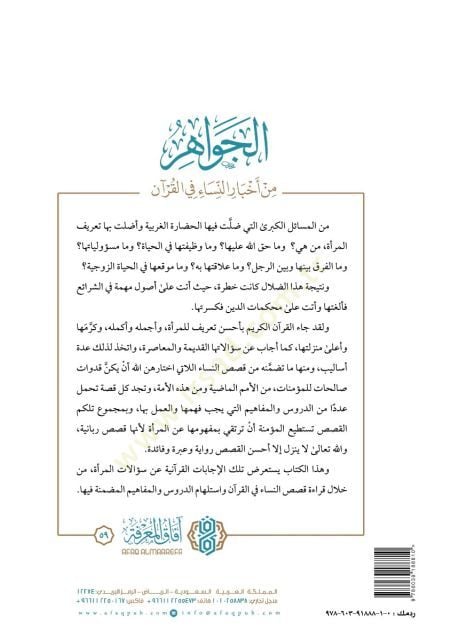 الجَوَاهِرُ
مِنْ أَخْبَارِ النِّسَاءِ فِي القُرْآن
من المسائل الكبرى التي ضلَّت فيها الحضارة الغربية وأضلت بها تعريف
المرأة، من هي؟ وما حق الله عليها؟ وما وظيفتها في الحياة؟ وما مسؤولياتها؟
وما الفرق بينها وبين الرجل؟ وما علاقتها به؟ وما موقعها في الحياة الزوجية؟
ونتيجة هذا الضلال كانت خطرة، حيث أتت على أصول مهمة في الشرائع
فألغتها وأتت على محكمات الدين فكسرتها.
ولقد جاء القرآن الكريم بأحسن تعريف للمرأة، وأجمله وأكمله، وكرَّمها
وأعلى منزلتها، كما أجاب عن سؤالاتها القديمة والمعاصرة، واتخذ لذلك عدة
أساليب، ومنها ما تضمَّنه من قصص النساء اللاتي اختارهن الله أنْ يكنَّ قدوات
صالحات للمؤمنات، من الأمم الماضية ومن هذه الأمة، وتجد كل قصة تحمل
عددًا من الدروس والمفاهيم التي يجب فهمها والعمل بها، وبمجموع تلكم
القصص تستطيع المؤمنة أنْ ترتقي بمفهومها عن المرأة لأنها قصص ربانية،
والله تعالى لا ينزل إلا أحسن القصص رواية وعبرة وفائدة.
وهذا الكتاب يستعرض تلك الإجابات القرآنية عن سؤالات المرأة، من
خلال قراءة قصص النساء في القرآن واستلهام الدروس والمفاهيم المضمنة فيها.
آفاق المعرفة
AFAQ ALMAREFA
٥٩
المملكة العربية السعودية - الرياض - الرمز البريدي:
www.afaqpub.com info@afaqpub.com
ردمك: ٠-١-٩١٨٨٨-٦٠٣-٩٧٨